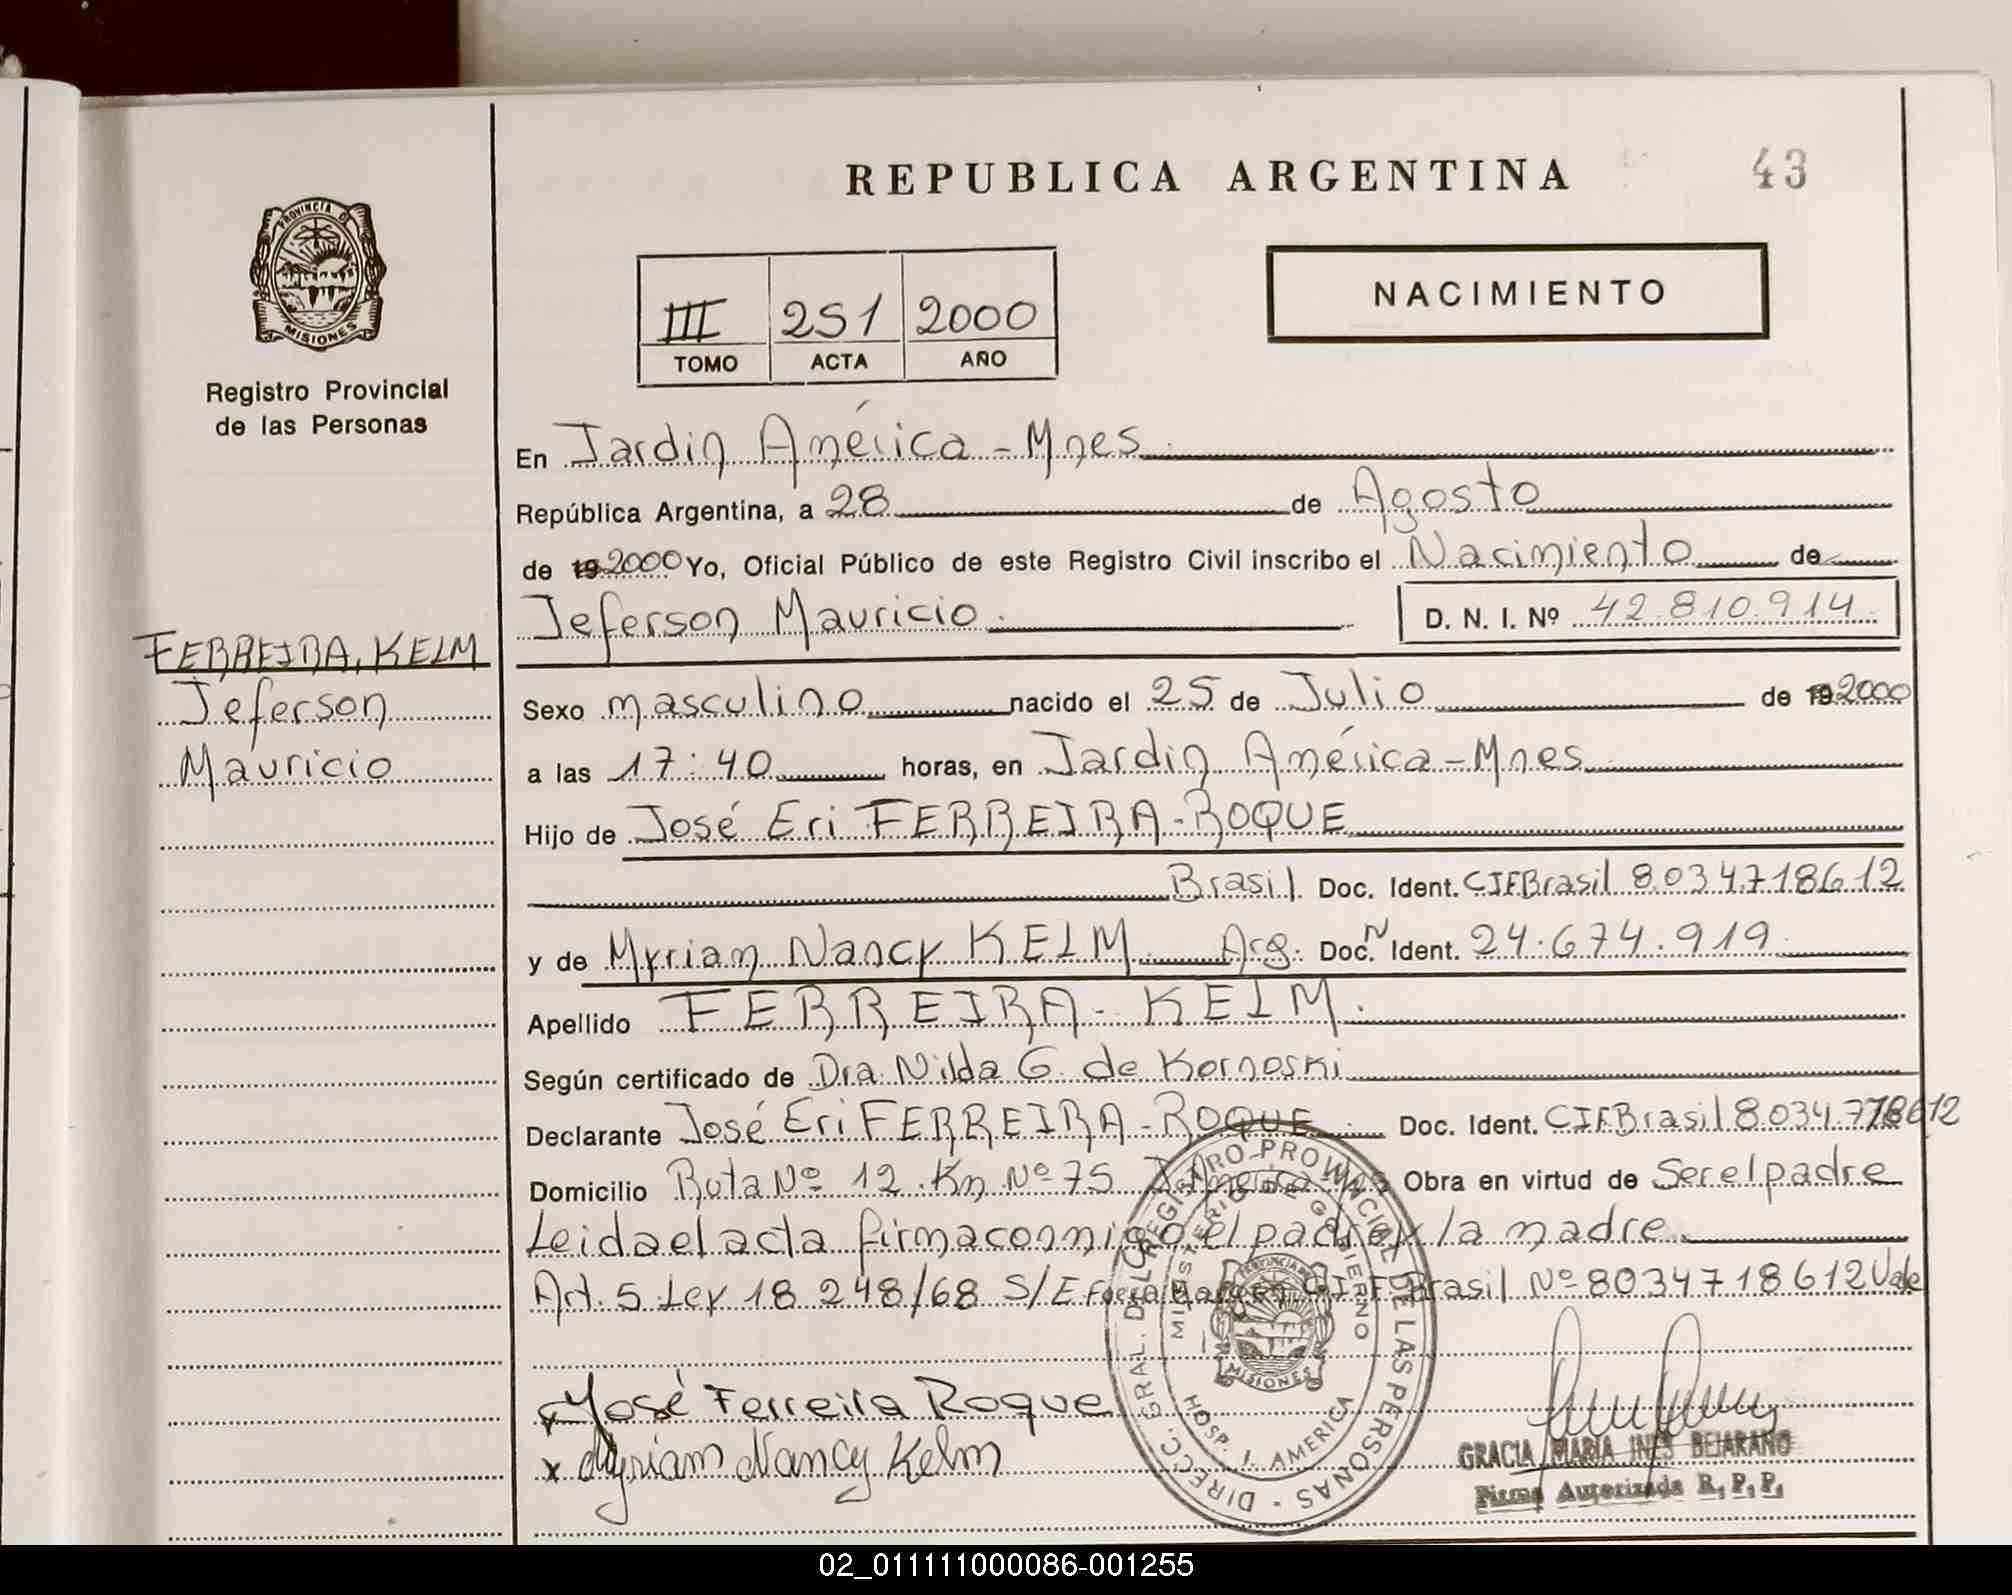 REPUBLICA ARGENTINA
43
PROVINCIA DE
MISIONES
Registro Provincial
de las Personas
III 251 2000
TOMO ACTA AÑO
NACIMIENTO
En Jardin América - Mnes.
República Argentina, a 28 de Agosto
de 19 2000 Yo, Oficial Público de este Registro Civil inscribo el Nacimiento de
Jeferson Mauricio. D. N. I. Nº 42.810.914.
FERREIRA, KELM
Jeferson
Mauricio
Sexo masculino nacido el 25 de Julio de 19 2000
a las 17:40 horas, en Jardin América - Mnes.
Hijo de José Eri FERREIRA - ROQUE
Brasil. Doc. Ident. CIFBrasil 8034718612
y de Myrian Nancy KELM Arg. Doc. N Ident. 24.674.919.
Apellido FERREIRA - KELM.
Según certificado de Dra Nilda G. de Kornoski
Declarante José Eri FERREIRA - ROQUE Doc. Ident. CIFBrasil 8034 8612
Domicilio Ruta Nº 12 Km Nº 75 J. America Obra en virtud de Ser el padre
Leida el acta firma conmigo el padre y la madre.
Art. 5 Ley 18 248/68 S/E Fuera Margen C.I.F. Brasil Nº 8034718612 Vale
José Ferreira Roque
x Myriam Nancy Kelm
DIRECC. GRAL. DEL REGISTRO PROVINCIAL DE LAS PERSONAS
MINISTERIO DE GOBIERNO
PROVINCIA DE
MISIONES
HOSP. J. AMERICA
GRACIA MARIA INES BEJARANO
Firma Autorizada R. P. P.
02_011111000086-001255